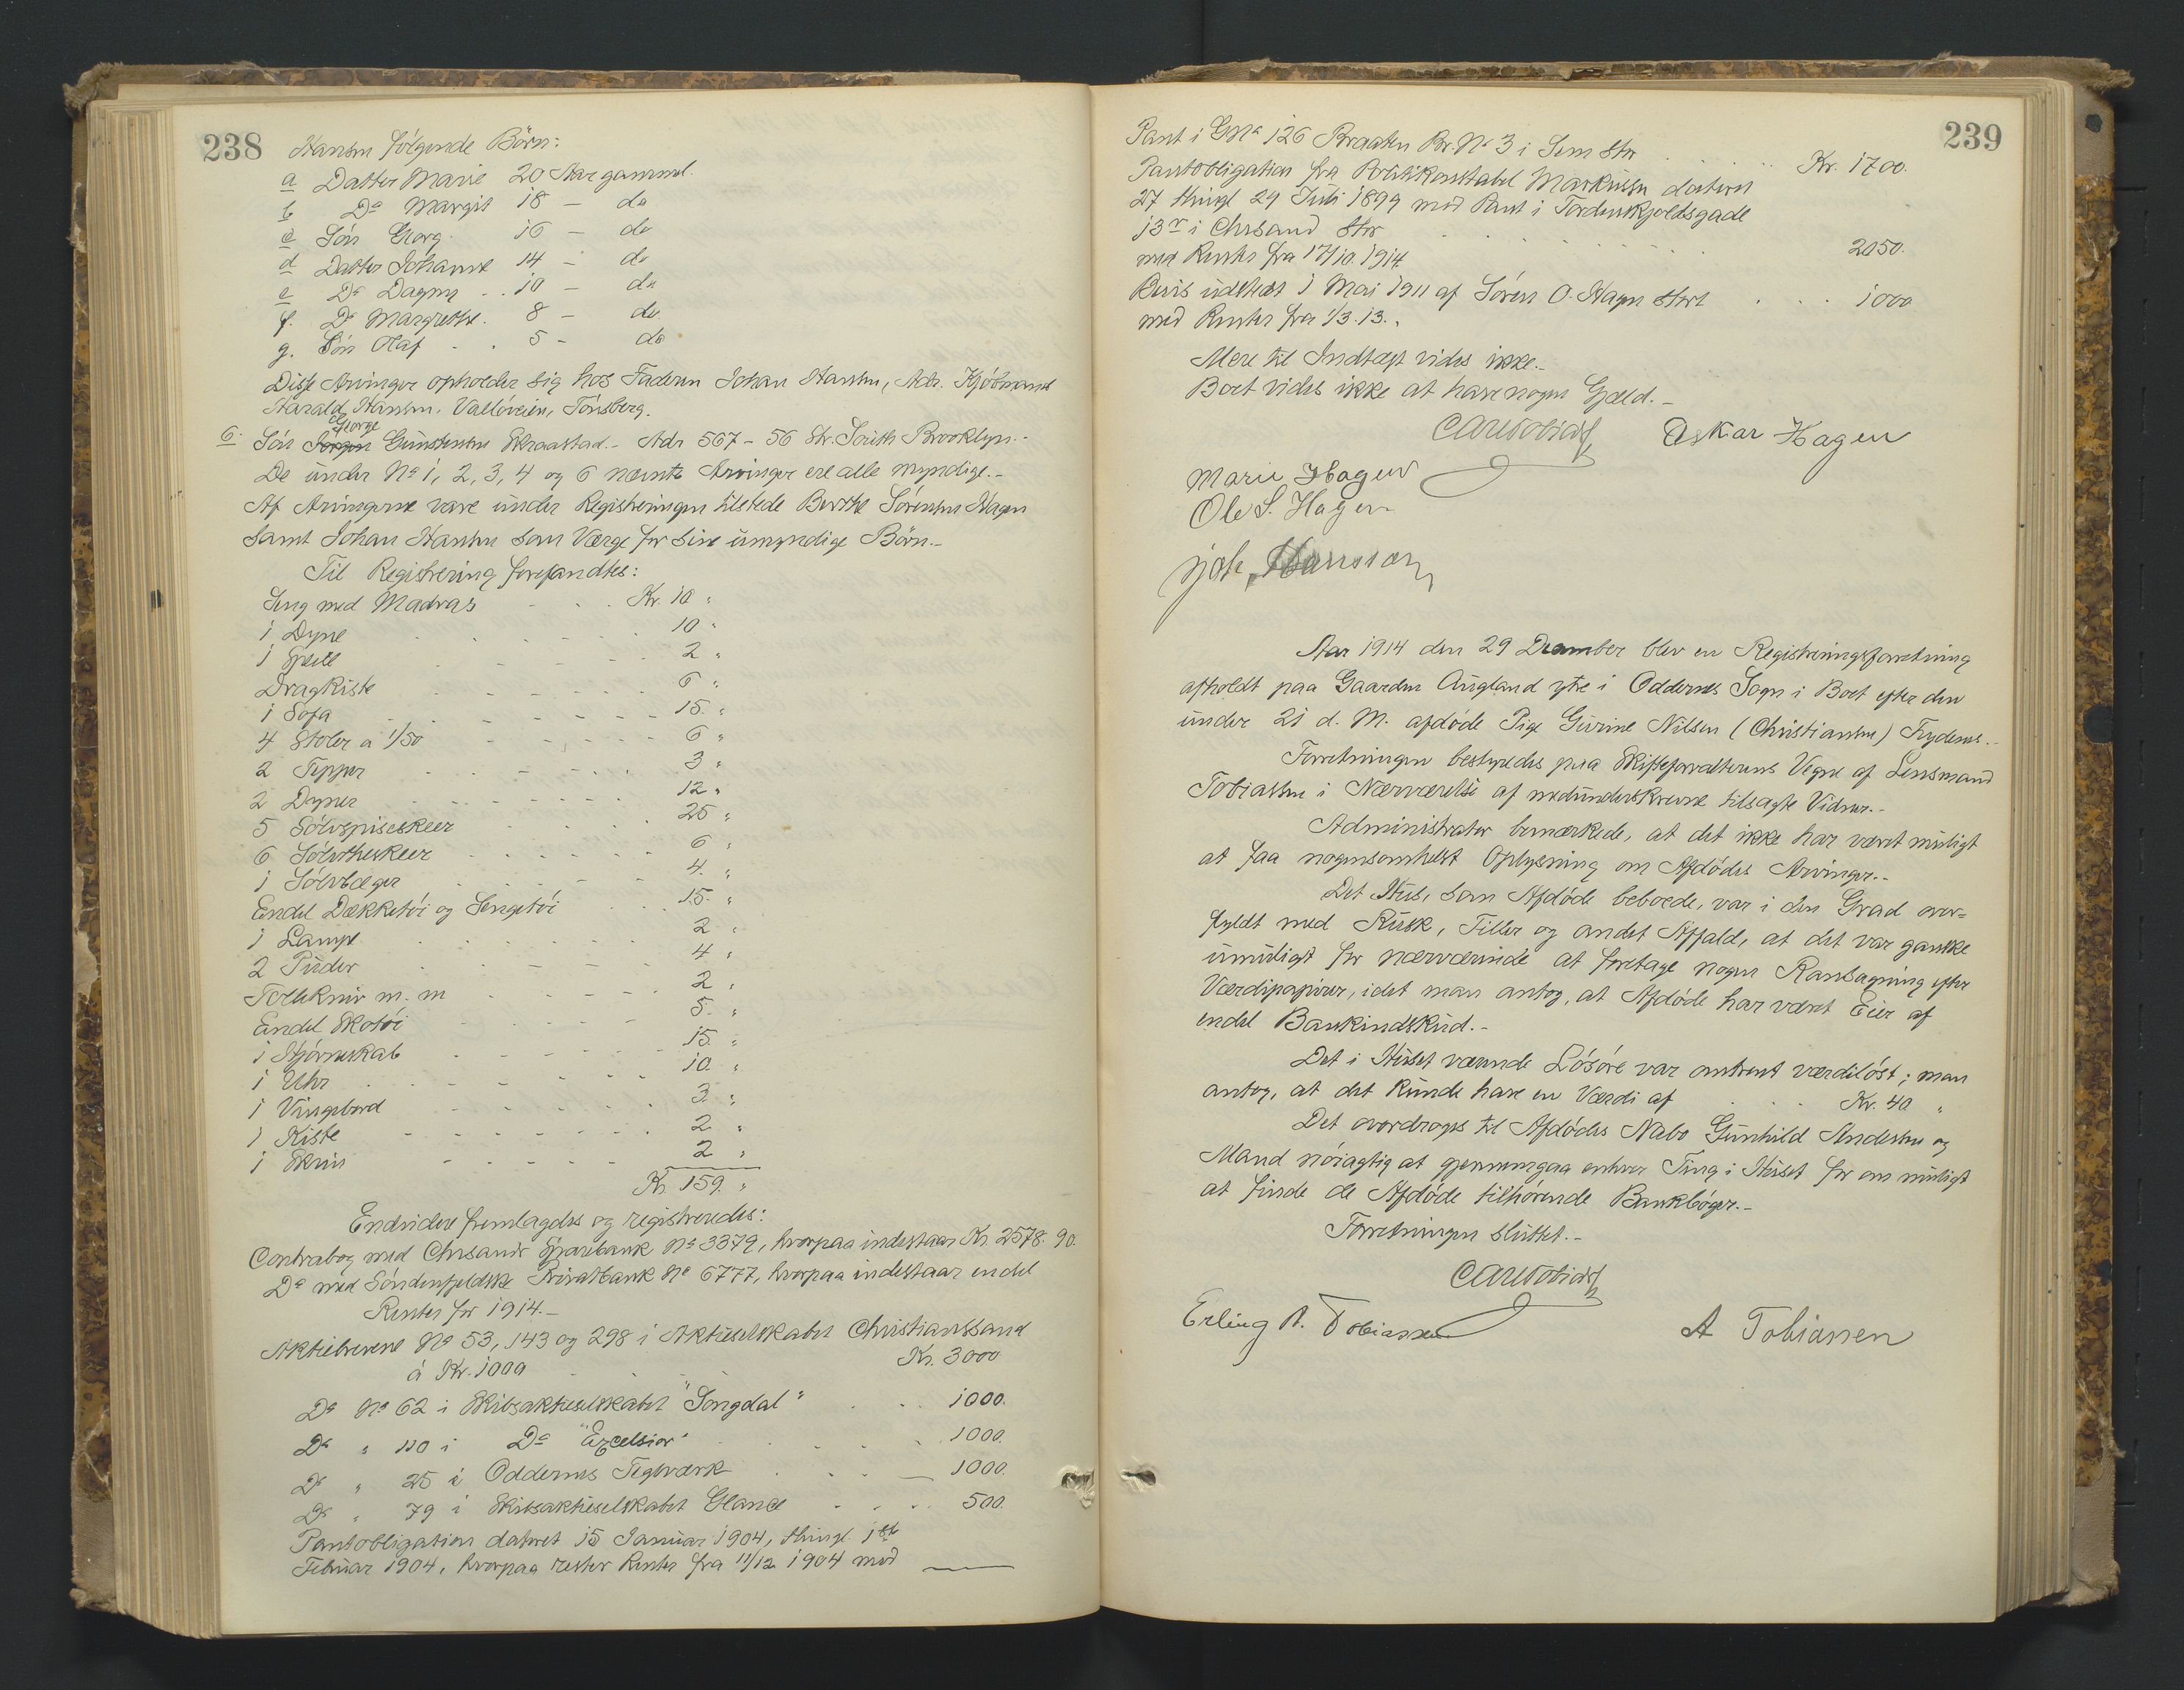 238
Hansen følgende Børn:
a Datter Marie 20 Aar gammel.
b Do Margit 18 - do
c Søn Georg 16 - do
d Datter Johanne 14 - do
e Do Dagny . . 10 - do
f. Do Margrethe. 8 - do
g. Søn Olaf . . 5 - do
Disse Arvinger opholder sig hos Faderen Johan Hansen, Adr. Kjøbmand
Harald Hansen. Valløveien, Tönsberg.
George
6. Søn Jørgen Gundersen Skraastad.- Adr 567 - 56 Str. South Brooklyn.-
De under No 1, 2, 3, 4 og 6 nævnte Arvinger ere alle myndige.-
Af Arvingerne vare under Registreringen tilstede Berthe Sørensen Hagen
samt Johan Hansen som Værge for sine umyndige Børn.-
Til Registrering forefandtes:
Seng med Madras . . . Kr. 10 "
1 Dyne . . . 10 "
1 Speil . . . 2 "
Dragkiste . . . 6 "
1 Sofa . . . 15. "
4 Stoler a 1/50 . . . 6 "
2 Tepper . . . 3 "
2 Dyner . . . 12 "
5 Sølvspiseskeer . . . 25 "
6 Sølvtheskeer . . . 6 "
1 Sølvbæger . . . 4. "
Endel Dækketøi og Sengetøi . . . 15. "
1 Lampe . . . 2 "
2 Puder . . . 4 "
Tollekniv m. m . . . 2 "
Endel Skotøi . . . 5. "
1 Hjørneskab . . . 15. "
1 Uhr . . . 10. "
1 Vingebord . . . 3 "
1 Kiste . . . 2 "
1 Skrin . . . 2 "
Kr. 159. "
Endvidere fremlagdes og registreredes:
Contrabog med Chrsands Sparebank No 3379, hvorpaa indestaar Kr. 2578. 90.
Do med Søndenfjeldske Privatbank No 6777, hvorpaa indestaar endel
Renter for 1914.-
Aktiebrevene No 53, 143 og 298 i Aktieselskabet Christianssand
á Kr. 1000 . . . Kr. 3000
Do No 62 i Skibsaktieselskabet "Songdal" . . . 1000.
Do " 110 i Do "Excelsior" . . . 1000.
Do " 25 i Oddernes Teglværk . . . 1000.
Do " 79 i Skibsaktieselskabet Glance . . . 500.
Pantobligation dateret 15 Januar 1904, thingl. 1ste
Februar 1904, hvorpaa rester Renter fra 11/12 1904 med
239
Pant i GNo 126 Braaten Br. No 3 i Sem stor . . . Kr. 1700.
Pantobligation fra Politikonstabel Markussen dateret
27 thingl 29 Juli 1899 med Pant i Tordenskjoldsgade
13 i Chrsand stor . . . 2050.
med Renter fra 17/10. 1914.
Bevis udstedt 1 Mai 1911 af Søren O. Hagen stort . . . 1000
med Renter fra 1/3. 13.
Mere til Indtægt vides ikke.-
Boet vides ikke at have nogen Gjæld.-
Oskar Hagen
Marie Hagen
Ole S. Hagen
Joh. Hansson
Aar 1914 den 29 December blev en Registreringsforretning
afholdt paa Gaarden Augland ytre i Oddernes Sogn i Boet efter den
under 21 d. M. afdøde Pige Gurine Nilsen (Christiansen) Frydenes.-
Forretningen bestyredes paa Skifteforvalterens Vegne af Lensmand
Tobiassen i Nærværelse af medunderskrevne tilsagte Vidner.-
Administrator bemærkede, at det ikke har været muligt
at faa nogensomhelst Oplysning om Afdødes Arvinger.-
Det Hus, som Afdøde beboede, var i den Grad over=
fyldt med Rusk, Filler og andet Affald, at det var ganske
umuligt for nærværende at foretage nogen Ransagning efter
Værdipapirer, idet man antog, at Afdøde har været Eier af
endel Bankindskud.-
Det i Huset værende Løsøre var omtrent værdiløst; man
antog, at det kunde have en Værdi af . . . Kr. 40 "
Det overdroges til Afdødes Nabo Gunhild Andersen og
Mand nøiagtig at gjennemgaa enhver Ting i Huset for om muligt
at finde de Afdøde tilhørende Bankbøger.-
Forretningen sluttet.-
Erling A. Tobiassen
A Tobiassen